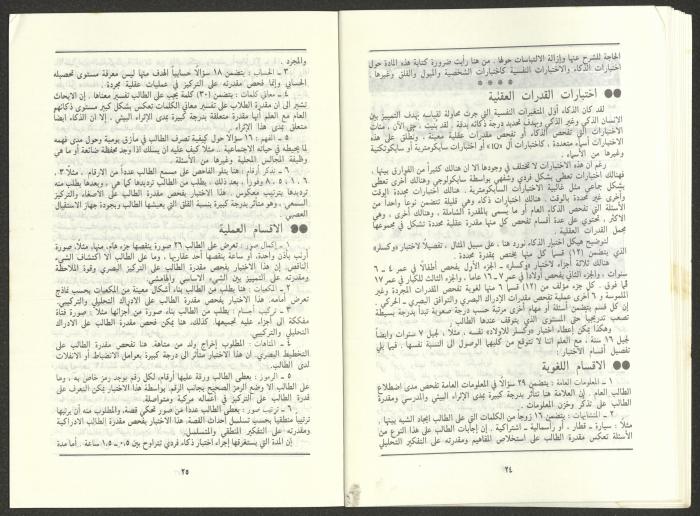 الحاجة للشرح عنها وإزالة الالتباسات حولها . من هنا رأيت ضرورة كتابة هذه المادة حول
اختبارات الذكاء والاختبارات النفسية كاختبارات الشخصية والميول والقلق وغيرها .
اختبارات القدرات العقلية
لقد كان الذكاء أول المتغيرات النفسية التي جرت محاولة لقياسه بهدف التمييز بين
الانسان الذكي وغير الذكي وبهدف تحديد درجة ذكائه بدقة . لقد بنيت ، حتى الآن ، مئات
الاختبارات التي تفحص الذكاء أو تفحص مقدرات عقلية معينة . ويطلق على هذه
الاختبارات أسماء متعددة ، كاختبارات أل «IQ» أو اختبارات سايكومترية أو سايكوتكنية
وغيرها من الأسماء .
رغم أن هذه الاختبارات لا تختلف في وجودها إلا ان هنالك كثيراً من الفوارق بينها ،
فهنالك اختبارات تعطى بشكل فردي وشفهي بواسطة سايكولوجي وهنالك أخرى تعطى
بشكل جماعي مثل غالبية الاختبارات السايكومترية . هنالك اختبارات محددة الوقت
وأخرى غير محددة بالوقت . هنالك اختبارات ذكاء وهي قليلة تتضمن نوعاً واحداً من
الأسئلة التي تفحص الذكاء العام أو ما يسمى بالمقدرة الشاملة ، وهنالك أخرى ، وهي
الاكثر ، تحتوي على عدة أقسام تفحص كل منها مقدرة عقلية محددة تشكل في مجموعها
مجمل القدرات العقلية .
لتوضيح هيكل اختبار الذكاء نورد هنا ، على سبيل المثال ، تفصيلا لاختبار «وكسلر»
الذي يتضمن (١٢) قسماً كل منها يختص بمقدرة محددة .
هنالك ثلاثة أجزاء لاختبار «وكسلر» ، الجزء الأول يفحص أطفالاً في عمر ٤ - ٦
سنوات ، والجزء الثاني يفحص أولاداً في عمر ٧ - ١٦ عاما ، والجزء الثالث للكبار في عمر ١٧
فما فوق . كل جزء مؤلف من (١٢) قسم ٦ منها لغوية تفحص القدرات المجردة وغير
الملموسة و ٦ أخرى عملية تفحص مقدرات الإدراك البصري والتوافق البصري - الحركي .
إن كل قسم يتضمن أسئلة أو مهام أخرى مرتبة حسب درجة صعوبة تبدأ بدرجة بسيطة
تصعب تدريجياً حتى المستوى الذي يتوقف عندها الطالب .
وهكذا يمكن إعطاء اختبار «وكسلر للأولاد» نفسه ، مثلاً ، لجيل ٧ سنوات وايضاً
لجيل ١٦ سنة ، مع العلم اننا لا نتوقع من كليهما الوصول الى النسبة نفسها . فيما يلي
تفصيل أقسام الاختبار :
الاقسام اللغوية
١ - المعلومات العامة : يتضمن ٢٩ سؤالاً في المعلومات العامة تفحص مدى اضطلاع
الطالب العام . إن العلامة هنا تتأثر بدرجة كبيرة بمدى الإثراء البيتي والمدرسي ومقدرة
الطالب على تذكر وخزن المعلومات .
٢ - المتشابهات : يتضمن ١٦ زوجاً من الكلمات التي على الطالب ايجاد الشبه بينها ،
مثلاً : سيارة - قطار . أو رأسمالية - اشتراكية . إن إجابات الطالب على هذا النوع من
الأسئلة تعكس مقدرة الطالب على استخلاص المفاهيم ومقدرته على التفكير التحليلي
٢٤
والمجرد .
٣ - الحساب : يتضمن ١٨ سؤالاً حسابياً الهدف منها ليس معرفة مستوى تحصيله
الحسابي وإنما فحص مقدرته على التركيز في عمليات عقلية مجردة .
٤ - معاني كلمات : يتضمن (٣٠) كلمة يجب على الطالب تفسير معناها . إن الابحاث
تشير الى ان مقدرة الطلاب على تفسير معاني الكلمات تعكس بشكل كبير مستوى ذكائهم
العام مع العلم أنها مقدرة متعلقة بدرجة كبيرة بمدى الإثراء البيتي . إلا ان الذكاء ايضاً
متعلق بمدى هذا الإثراء .
٥ - الفهم : ١٦ سؤالاً حول كيفية تصرف الطالب في مآزق يومية وحول مدى فهمه
لما يحيطه في حياته الاجتماعية . مثلاً كيف عليه ان يسلك اذا وجد محفظة ضائعة أو ما هي
وظيفة المجالس المحلية وغيرها من الأسئلة .
٦ - تذكر أرقام : هنا يتلو الفاحص على مسمع الطالب عدداً من الارقام ، مثلاً ٣ ،
٦ ، ١ ، ٥ ، ٨ وفوراً ، بعد ذلك ، يطلب من الطالب ترديدها كما هي ، وبعدها يطلب منه
ترديدها بترتيب معكوس . هذا الاختبار يفحص مقدرة الطالب على الاصغاء والتركيز
السمعي ، وهو متأثر بدرجة كبيرة بنسبة القلق التي يعيشها الطالب وبجودة جهاز الاستقبال
العصبي .
الاقسام العملية
١ - إكمال صور : تعرض على الطالب ٢٦ صورة ينقصها جزء هام، منها، مثلا، صورة
أرنب بأذن واحدة، أو ساعة ينقصها أحد عقاربها ، وما على الطالب الا اكتشاف الشيء
الناقص. إن هذا الاختبار يفحص مقدرة الطالب على التركيز البصري وقوة الملاحظة
ومقدرته على التمييز بين الشيء الاساسي والهامشي.
٢ - المكعبات : هنا يطلب من الطالب بناء أشكال معينة من المكعبات بحسب نماذج
تعرض أمامه. هذا الاختبار يفحص مقدرة الطالب على الادراك التحليلي والتركيبي.
٣ - تركيب أجسام : يطلب من الطالب بناء صورة من أجزائها مثلاً : صورة فتاة
مفككة الى أجزاء عليه تجميعها. كذلك، هنا يمكن فحص مقدرة الطالب على الادراك
التحليلي والتركيبي.
٤ - المتاهات : المطلوب إخراج ولد من متاهة. هنا تفحص مقدرة الطالب على
التخطيط البصري. ان هذا الاختبار متأثر الى درجة كبيرة بعوامل الانضباط أو الانفلات
لدى الطالب.
٥ - الرموز : يعطى الطالب ورقة عليها أرقام، لكل رقم يوجد رمز خاص به ، وما
على الطالب الا وضع الرمز الصحيح بجانب الرقم. بواسطة هذا الاختبار يمكن التعرف على
قدرة الطالب على التركيز في أعماله مركبة ومتواصلة.
٦ - ترتيب صور : يعطى الطالب عددا من صور تحكي قصة، والمطلوب منه أن يرتبها
ترتيبا منطقيا بحسب تسلسل أحداث القصة. هذا الاختبار يفحص مقدرة الطالب الادراكية
ومقدرته على التفكير المنطقي والمتسلسل.
إن المدة التي يستغرقها إجراء اختبار ذكاء فردي تتراوح بين ٠,٥ - ١,٥ ساعة . أما مدة
٢٥